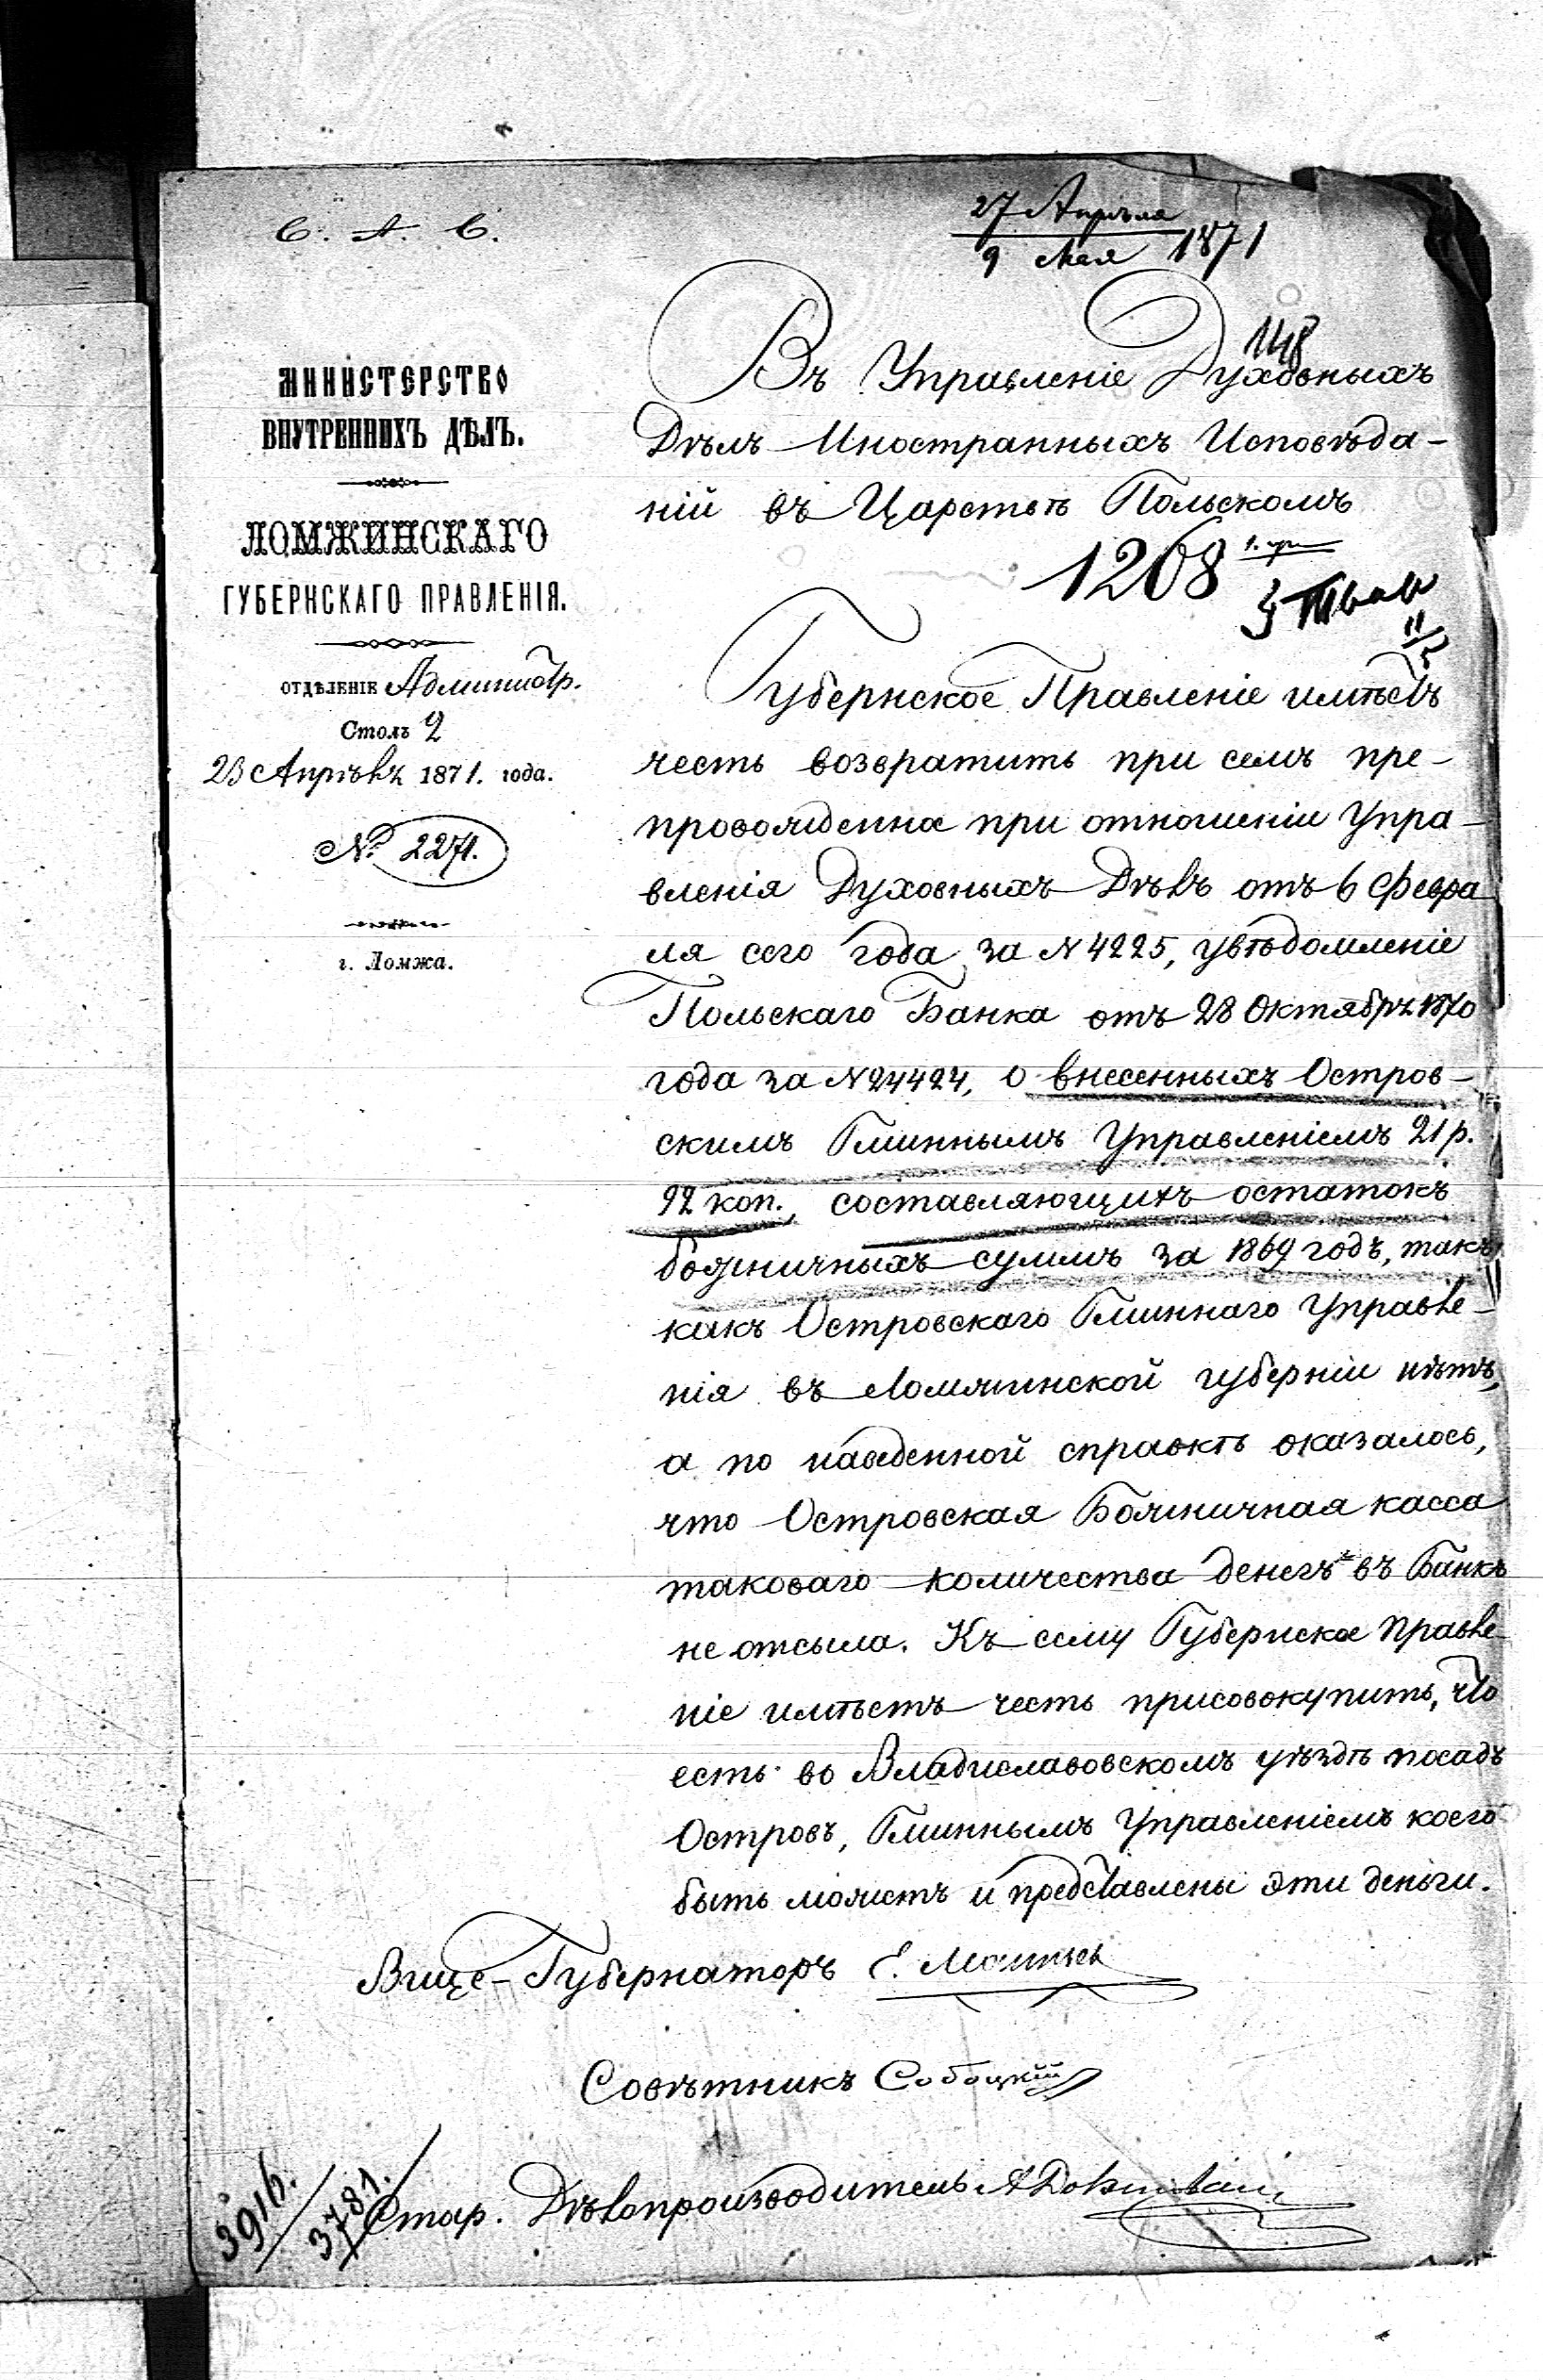 С. А. С.
27 Апрѣля
9 Мая 1871
148
МИНИСТЕРСТВО
ВНУТРЕННИХЪ ДѢЛЪ.
ЛОМЖИНСКАГО
ГУБЕРНСКАГО ПРАВЛЕНІЯ.
ОТДѢЛЕНІЕ Администр.
Столъ 2
23 Апрѣля 1871. года.
№ 2271.
г. Ломжа.
Въ Управленіе Духовныхъ
Дѣлъ Иностранныхъ Исповѣда-
ній въ Царствѣ Польскомъ
1268
Губернское Правленіе имѣетъ
честь возвратить при семъ пре-
провожденное при отношеніи Упра-
вленія Духовныхъ Дѣлъ отъ 6 Февра
ля сего года за N 4225, увѣдомленіе
Польскаго Банка отъ 28 Октября 1870
года за N 24424, о внесенныхъ Остров-
скимъ Гминнымъ Управленіемъ 21 р.
92 коп., составляющихъ остатокъ
божничныхъ суммъ за 1869 годъ, такъ
какъ Островскаго Гминнаго Управле-
нія въ Ломжинской губерніи нѣтъ,
а по наведенной справкѣ оказалось,
что Островская Божничная касса
таковаго количества денегъ въ Банкъ
не отсыла. Къ сему Губернское Правле-
ніе имѣетъ честь присовокупить, что
есть во Владиславовскомъ уѣздѣ посадъ
Островъ, Гминнымъ Управленіемъ коего
быть можетъ и представлены эти деньги.
Вице-Губернаторъ Е.
Совѣтникъ Собоцкій
Стар. Дѣлопроизводитель
3916.
3781.